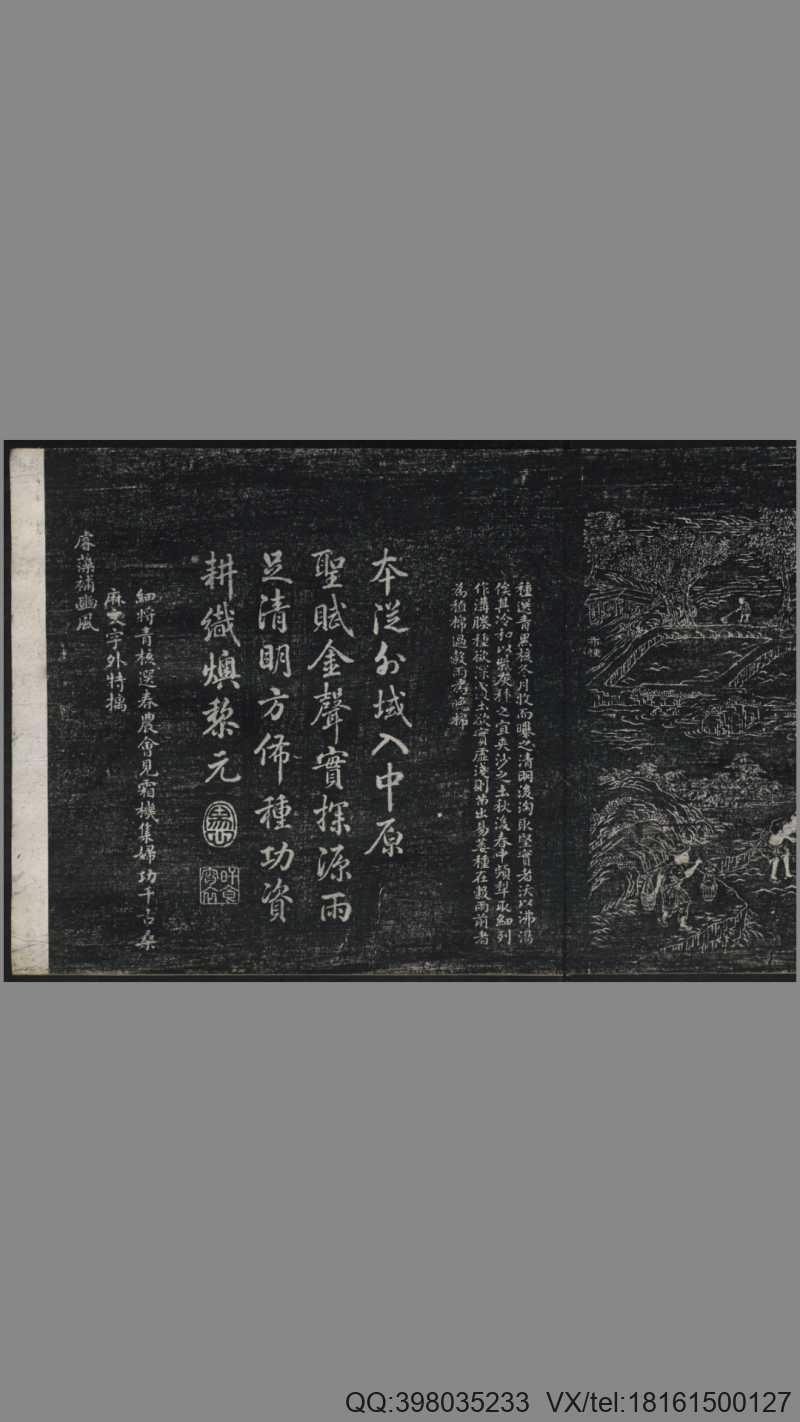 布種
種選青黑核冬月收而曝之清明後淘取堅實者沃以沸湯
俟其冷和以柴灰種之宜夾沙之土秋後春中頻犁取細列
作溝塍種欲深覆土欲實虛淺則苗出易萎種在穀雨前者
為植棉過穀雨為晚棉
本從外域入中原
聖賦金聲實探源雨
足清明方佈種功資
耕織燠黎元
細將青核選春農會見霜機集婦功千古桑
麻文字外特摛
睿藻補豳風
QQ:398035233 VX/tel:18161500127